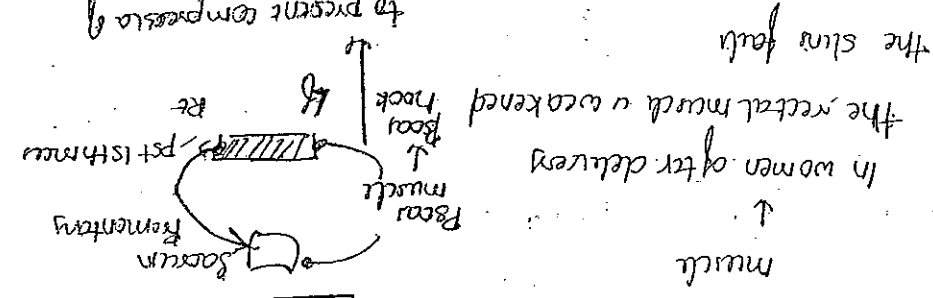 muscle
↓
In women after delivery
the rectal muscle is weakened
the sling fails
Sacrum
Promentary
Psoas
muscle
↓
Psoas
hock
pst Isthmus
Rt
to prevent compression of